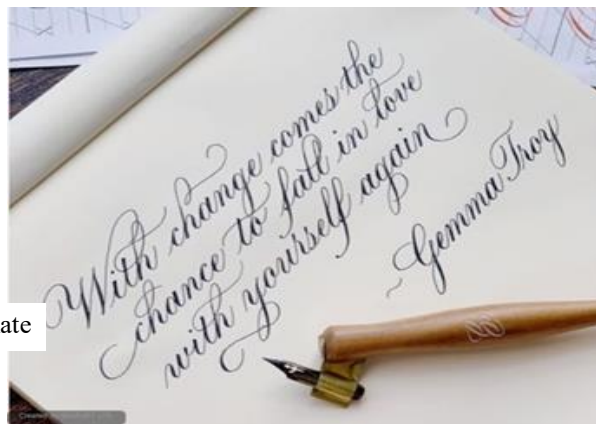 With change comes the
chance to fall in love
with yourself again
~Gemma Troy
ate
Created